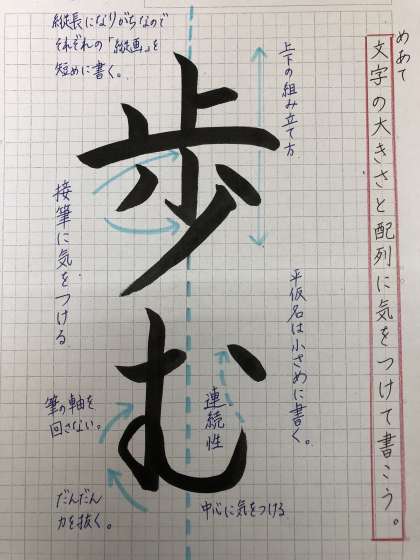 めあて
文字の大きさと配列に気をつけて書こう。
上下の組み立て方
平仮名は小さめに書く。
縦長になりがちなので
それぞれの「縦画」を
短めに書く。
歩む
接筆に気をつける
連続性
中心に気をつける
筆の軸を
回さない。
だんだん
力を抜く。